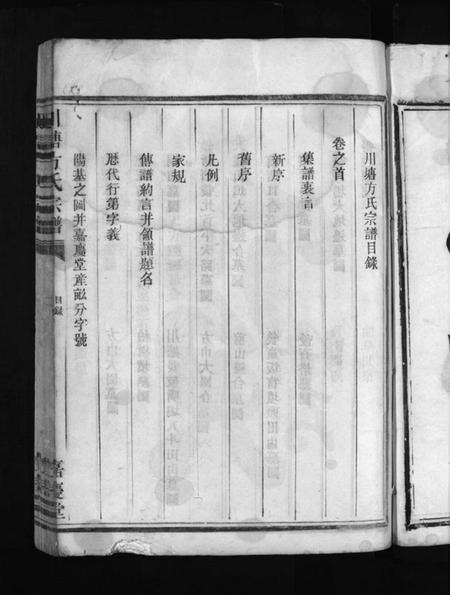 川塘方氏宗譜目錄
卷之首
集譜裒言
新序
舊序
凡例
家規
傳譜約言并領譜題名
歷代行第字義
陽基之圖并嘉慶堂產畝分字號
川塘方氏宗譜
目錄
嘉慶堂